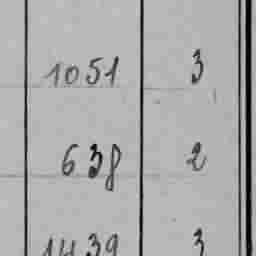 1051 3
638 2
1439 3